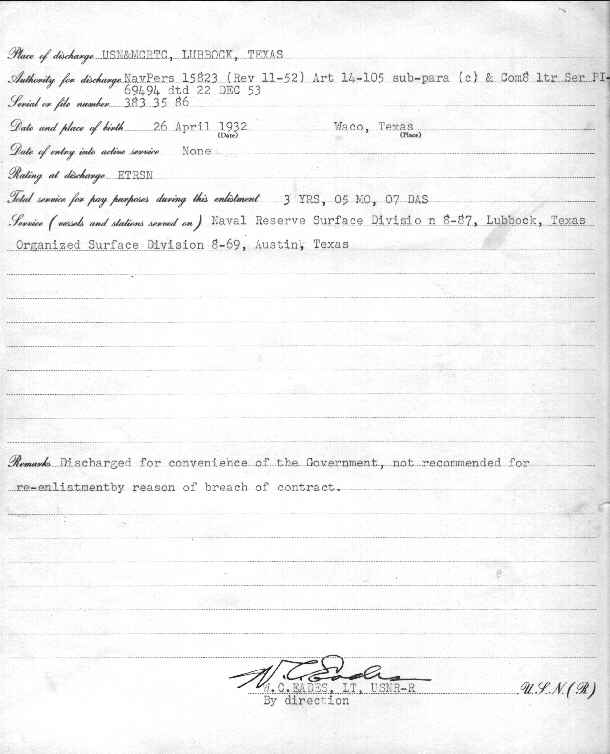 Place of discharge USN&MCRTC, LUBBOCK, TEXAS
Authority for discharge NavPers 15823 (Rev 11-52) Art 14-105 sub-para (c) & Com8 ltr Ser PI-
69494 dtd 22 DEC 53
Serial or file number 383 35 86
Date and place of birth 26 April 1932 Waco, Texas
(Date) (Place)
Date of entry into active service None
Rating at discharge ETRSN
Total service for pay purposes during this enlistment 3 YRS, 05 MO, 07 DAS
Service (vessels and stations served on) Naval Reserve Surface Divisio n 8-87, Lubbock, Texas
Organized Surface Division 8-69, Austin, Texas
Remarks Discharged for convenience of the Government, not recommended for
re-enlistmentby reason of breach of contract.
W. C. Eades
W.C.EADES, LT, USNR-R U.S.N.(R)
By direction